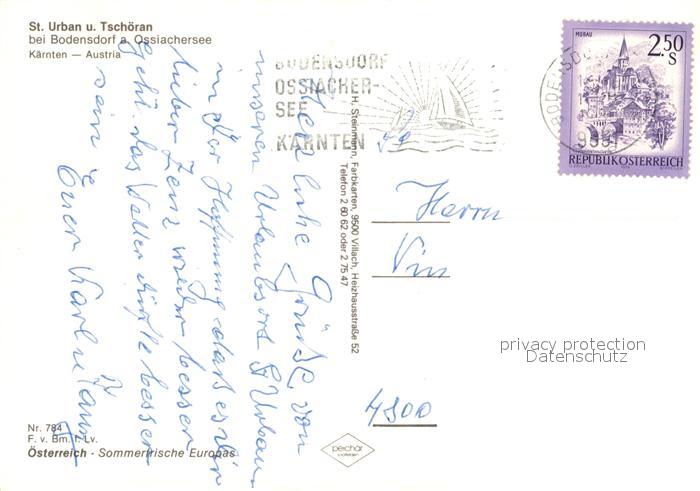 St. Urban u. Tschöran
bei Bodensdorf a. Ossiachersee
Kärnten — Austria
BODENSDORF
OSSIACHER-
SEE
KÄRNTEN
MURAU
2.50
S
REPUBLIK ÖSTERREICH
H. Steinmann, Farbkarten, 9500 Villach, Heizhausstraße 52
Telefon 2 60 62 oder 2 75 47
Herzliche Grüße von
unseren Urlaubsort St Urban
in der Hoffnung daß es dir
lieber Zenz wieder besser
geht. das Wetter dürfte besser
sein
Euer Karl u
Herrn
4800
privacy protection
Datenschutz
Nr. 784
F. v. Bm. f. Lv.
Österreich - Sommerfrische Europas